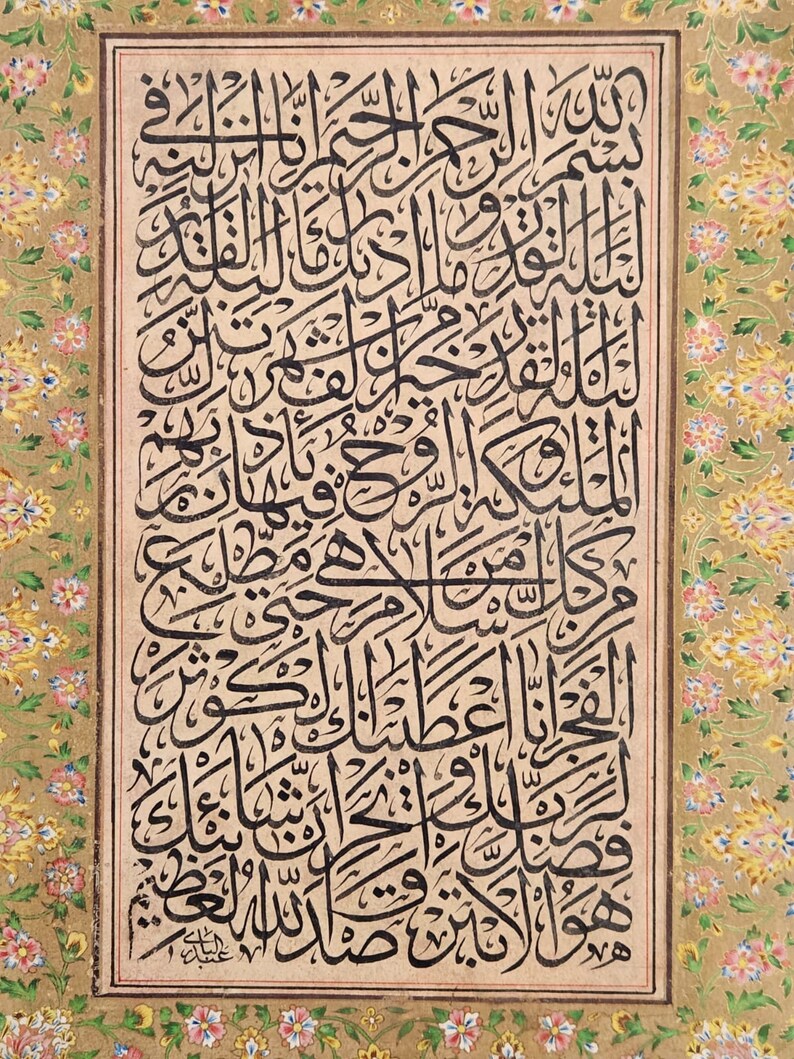 بسم الله الرحمن الرحيم انا انزلنه في
ليلة القدر وما ادرىك ما ليلة القدر
ليلة القدر خير من الف شهر تنزل
الملئكة والروح فيها باذن ربهم
من كل امر سلام هي حتى مطلع
الفجر انا اعطينك الكوثر
فصل لربك وانحر ان شانئك
هو الابتر صدق الله العظيم